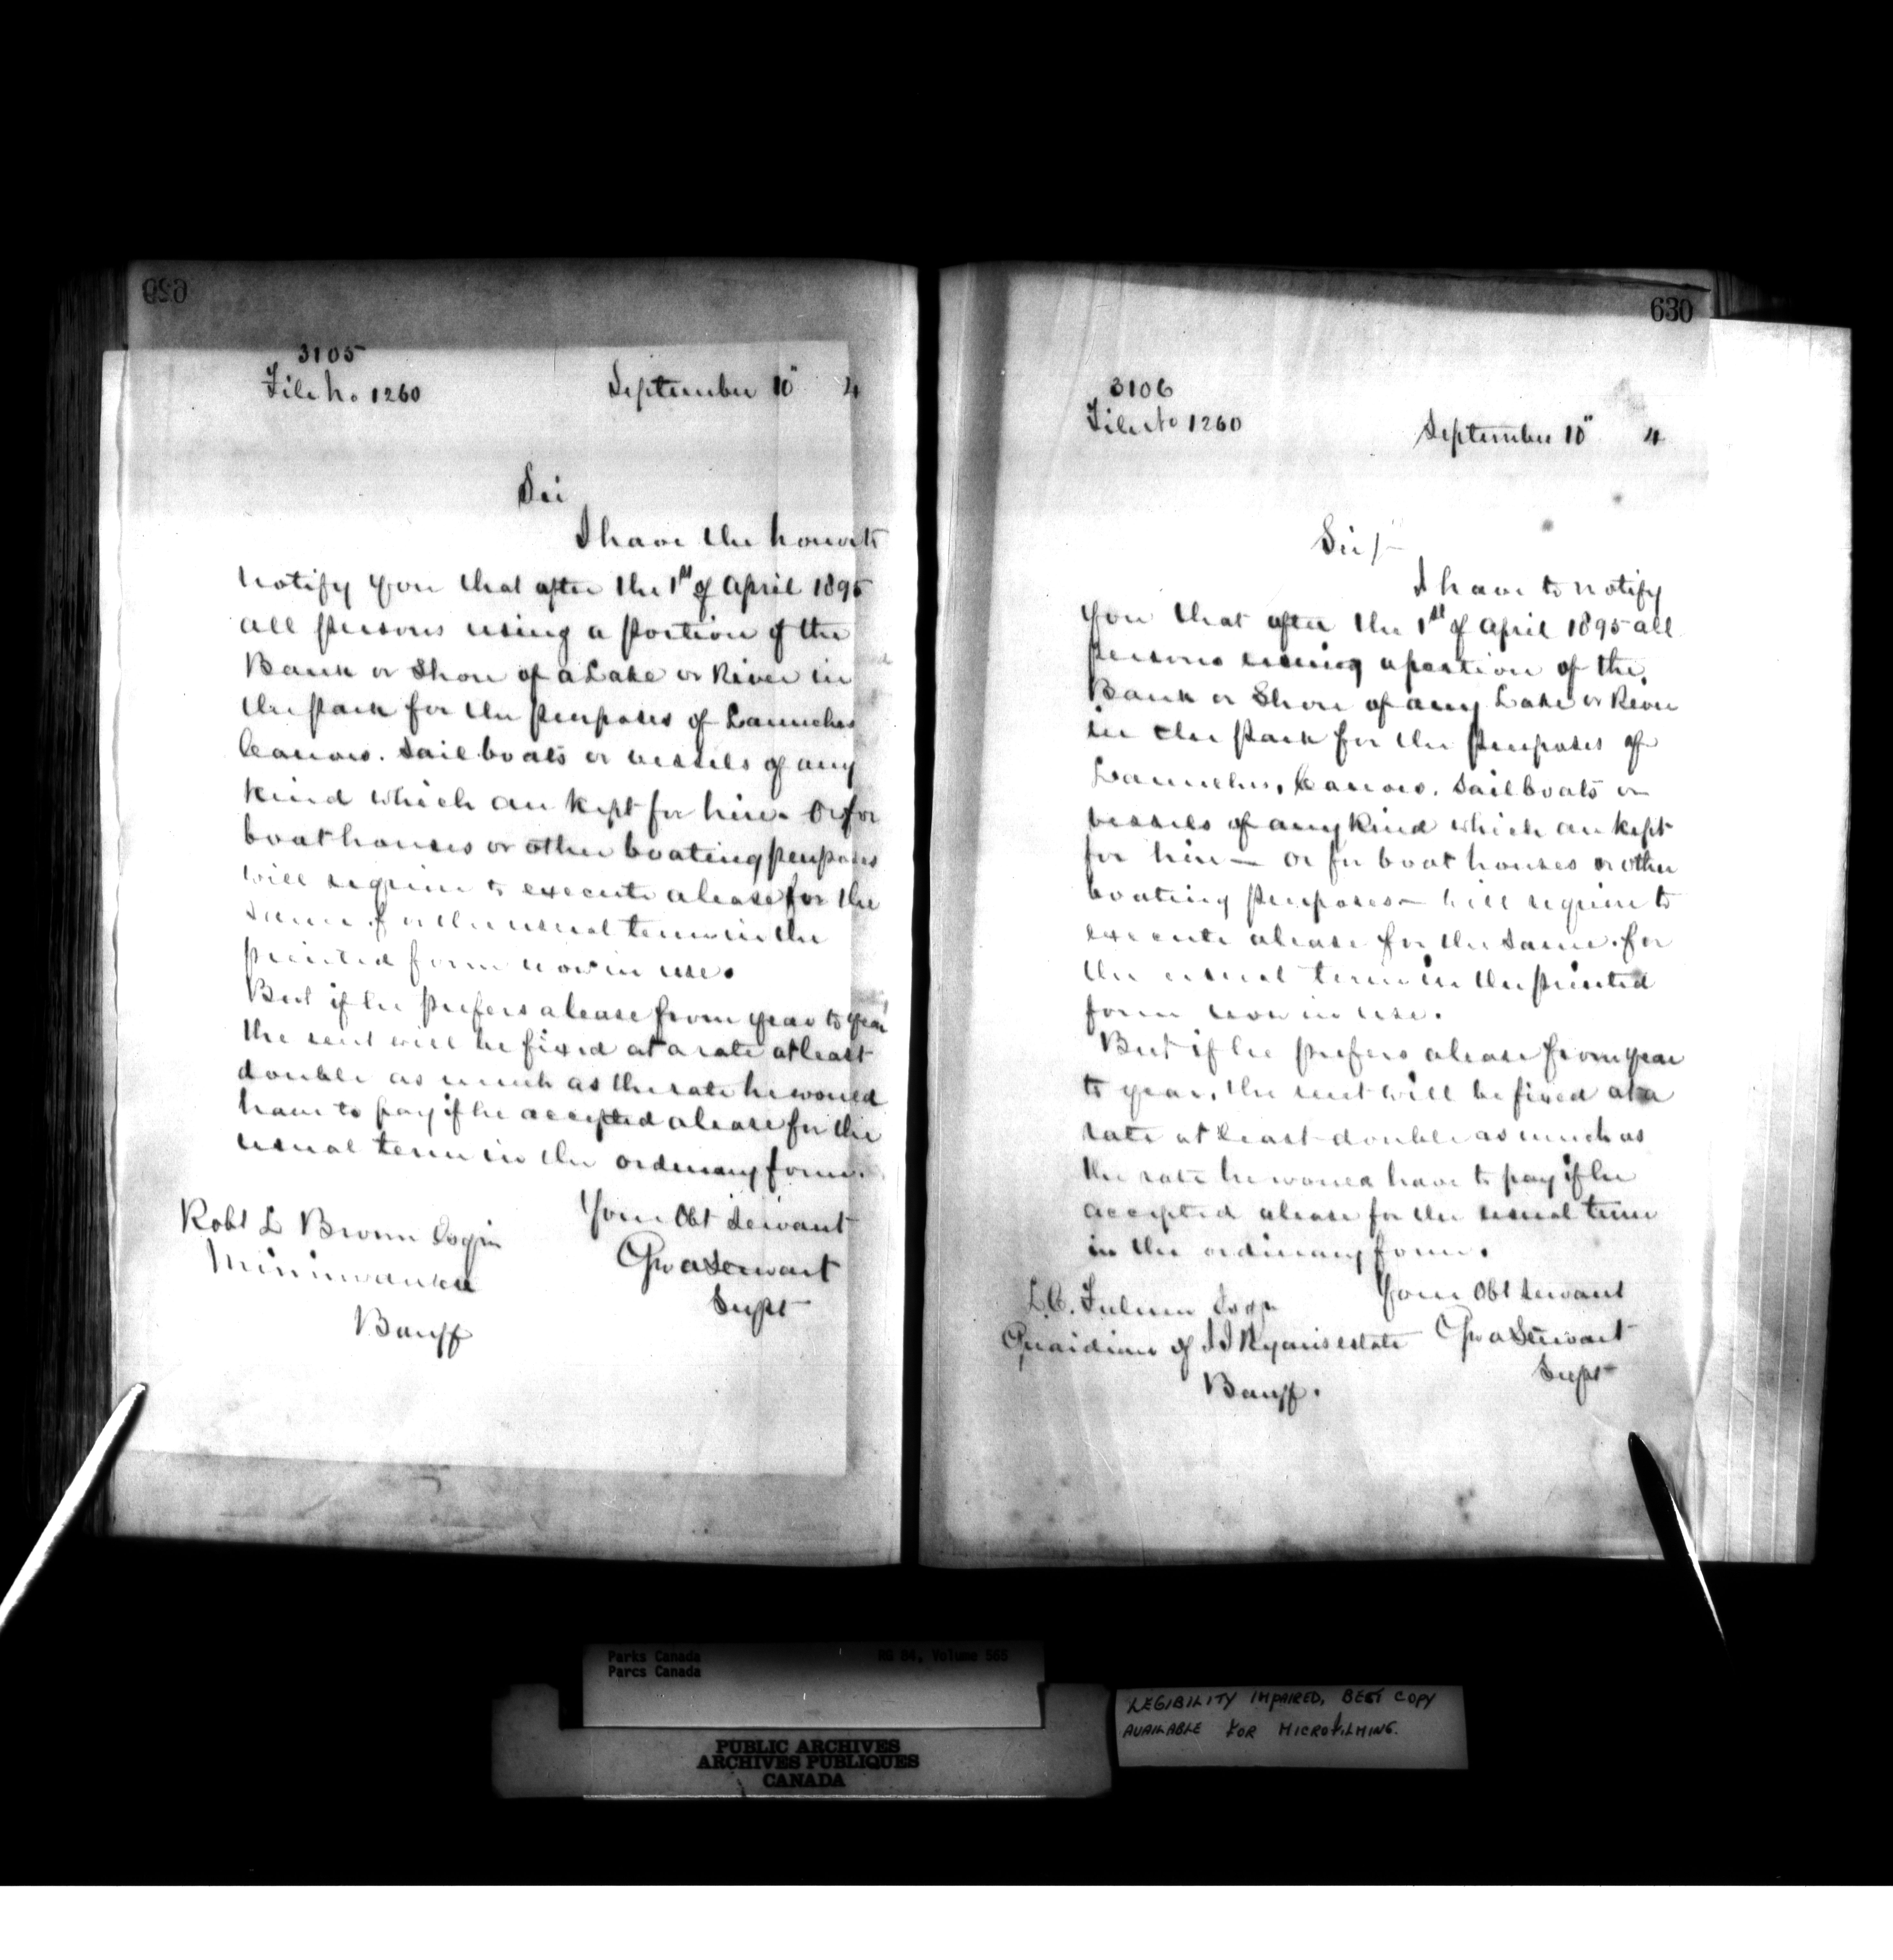 3105
File No 1260 September 10" 4
Sir
I have the honor to
notify you that after the 1st of April 1895
all persons using a portion of the
Bank or Shore of a Lake or River in
the Park for the purposes of Launches
Canoes. Sail boats or vessels of any
kind which are kept for hire. Or for
boat houses or other boating purposes
will require to execute a lease for the
same for the usual term in the
printed form now in use.
But if he prefers a lease from year to year
the rent will be fixed at a rate at least
double as much as the rate he would
have to pay if he accepted a lease for the
usual term in the ordinary form.
Your Obt Servant
Geo A Stewart
Supt
Robt L Brown Esqr
Minnewanka
Banff
630
3106
File No 1260 September 10" 4
Sir/-
I have to notify
you that after the 1st of April 1895 all
persons using a portion of the
Bank or Shore of any Lake or River
in the Park for the purposes of
Launches, Canoes. Sail boats or
vessels of any kind which are kept
for hire — or for boat houses or other
boating purposes — will require to
execute a lease for the same. for
the usual term in the printed
form now in use.
But if he prefers a lease from year
to year, the rent will be fixed at a
rate at least double as much as
the rate he would have to pay if he
accepted a lease for the usual term
in the ordinary form.
Your Obt Servant
Geo A Stewart
Supt
L.C. Fulmer Esqr
Guardian of J J Ryans estate
Banff.
Parks Canada RG 84, Volume 565
Parcs Canada
PUBLIC ARCHIVES
ARCHIVES PUBLIQUES
CANADA
LEGIBILITY IMPAIRED, BEST COPY
AVAILABLE FOR MICROFILMING.